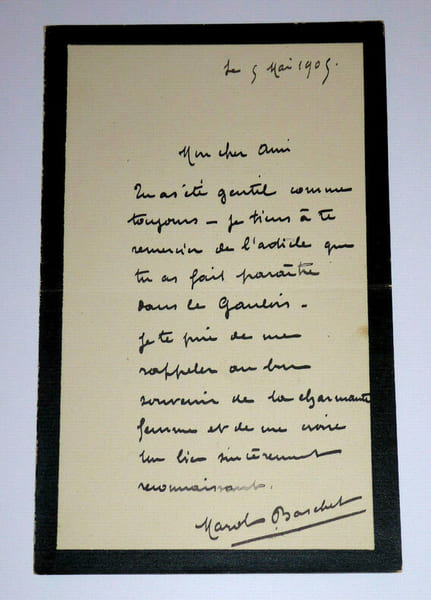 Le 5 Mai 1905.
Mon cher Ami
Tu as été gentil comme
toujours — je tiens à te
remercier de l'article que
tu as fait paraître
dans le Gaulois -
Je te prie de me
rappeler au bon
souvenir de ta charmante
femme et de me croire
ton bien sincèrement
reconnaissant.
Marcel Baschet